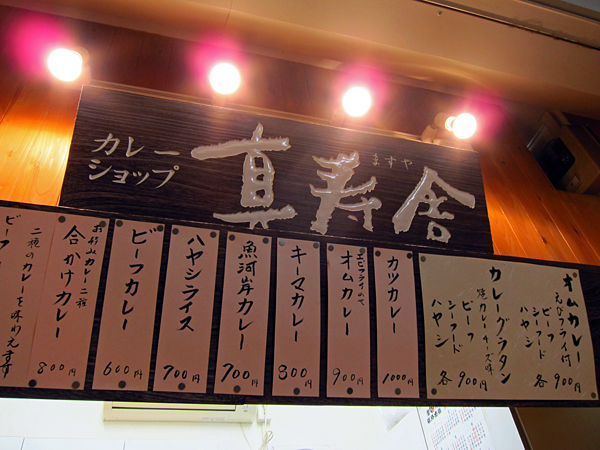 カレー
ショップ
真寿舎
ますや
オムカレー
えびフライ付
ビーフ
シーフード
ハヤシ
各900円
カレーグラタン
焼カレーチーズ味
ビーフ
シーフード
ハヤシ
各900円
カツカレー
1000円
エビフライのせ
オムカレー
900円
キーマカレー
800円
魚河岸カレー
900円
ハヤシライス
700円
ビーフカレー
600円
お好みカレー二種
合かけカレー
800円
二種のカレーを味わえます
ビーフ